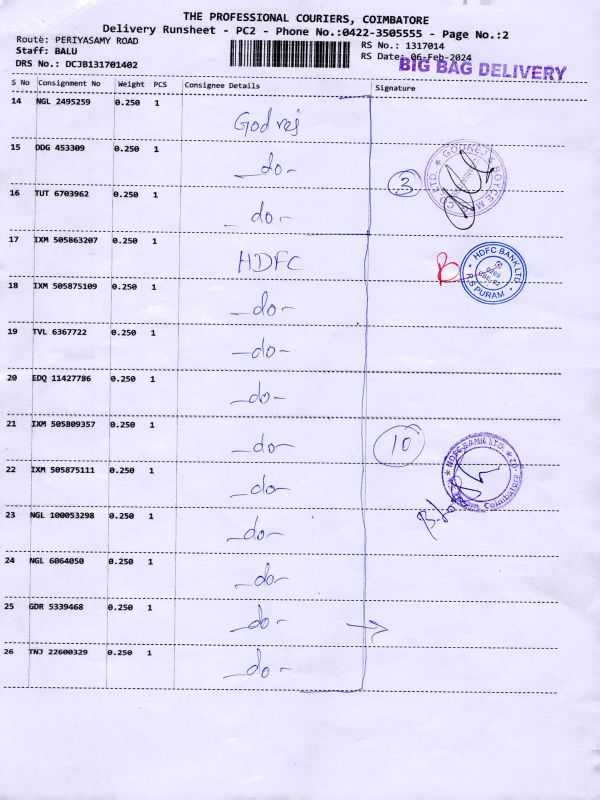 THE PROFESSIONAL COURIERS, COIMBATORE
Delivery Runsheet - PC2 - Phone No.:0422-3505555 - Page No.:2
Route: PERIYASAMY ROAD
RS No.: 1317014
Staff: BALU
RS Date: 06-Feb-2024
DRS No.: DCJB131701402
BIG BAG DELIVERY
S No Consignment No Weight PCS Consignee Details Signature
14 NGL 2495259 0.250 1 Godrej
15 DDG 453309 0.250 1 -do-
GODREJ & BOYCE M
CO. LTD.
3
16 TUT 6703962 0.250 1 -do-
17 IXM 505863207 0.250 1 HDFC
HDFC BANK LTD
R S PURAM
18 IXM 505875109 0.250 1 -do-
19 TVL 6367722 0.250 1 -do-
20 EDQ 11427786 0.250 1 -do-
21 IXM 505809357 0.250 1 -do-
10
HDFC BANK LTD.
Coimbatore
22 IXM 505875111 0.250 1 -do-
23 NGL 100053298 0.250 1 -do-
24 NGL 6064050 0.250 1 -do-
25 GDR 5339468 0.250 1 -do-
26 TNJ 22600329 0.250 1 -do-